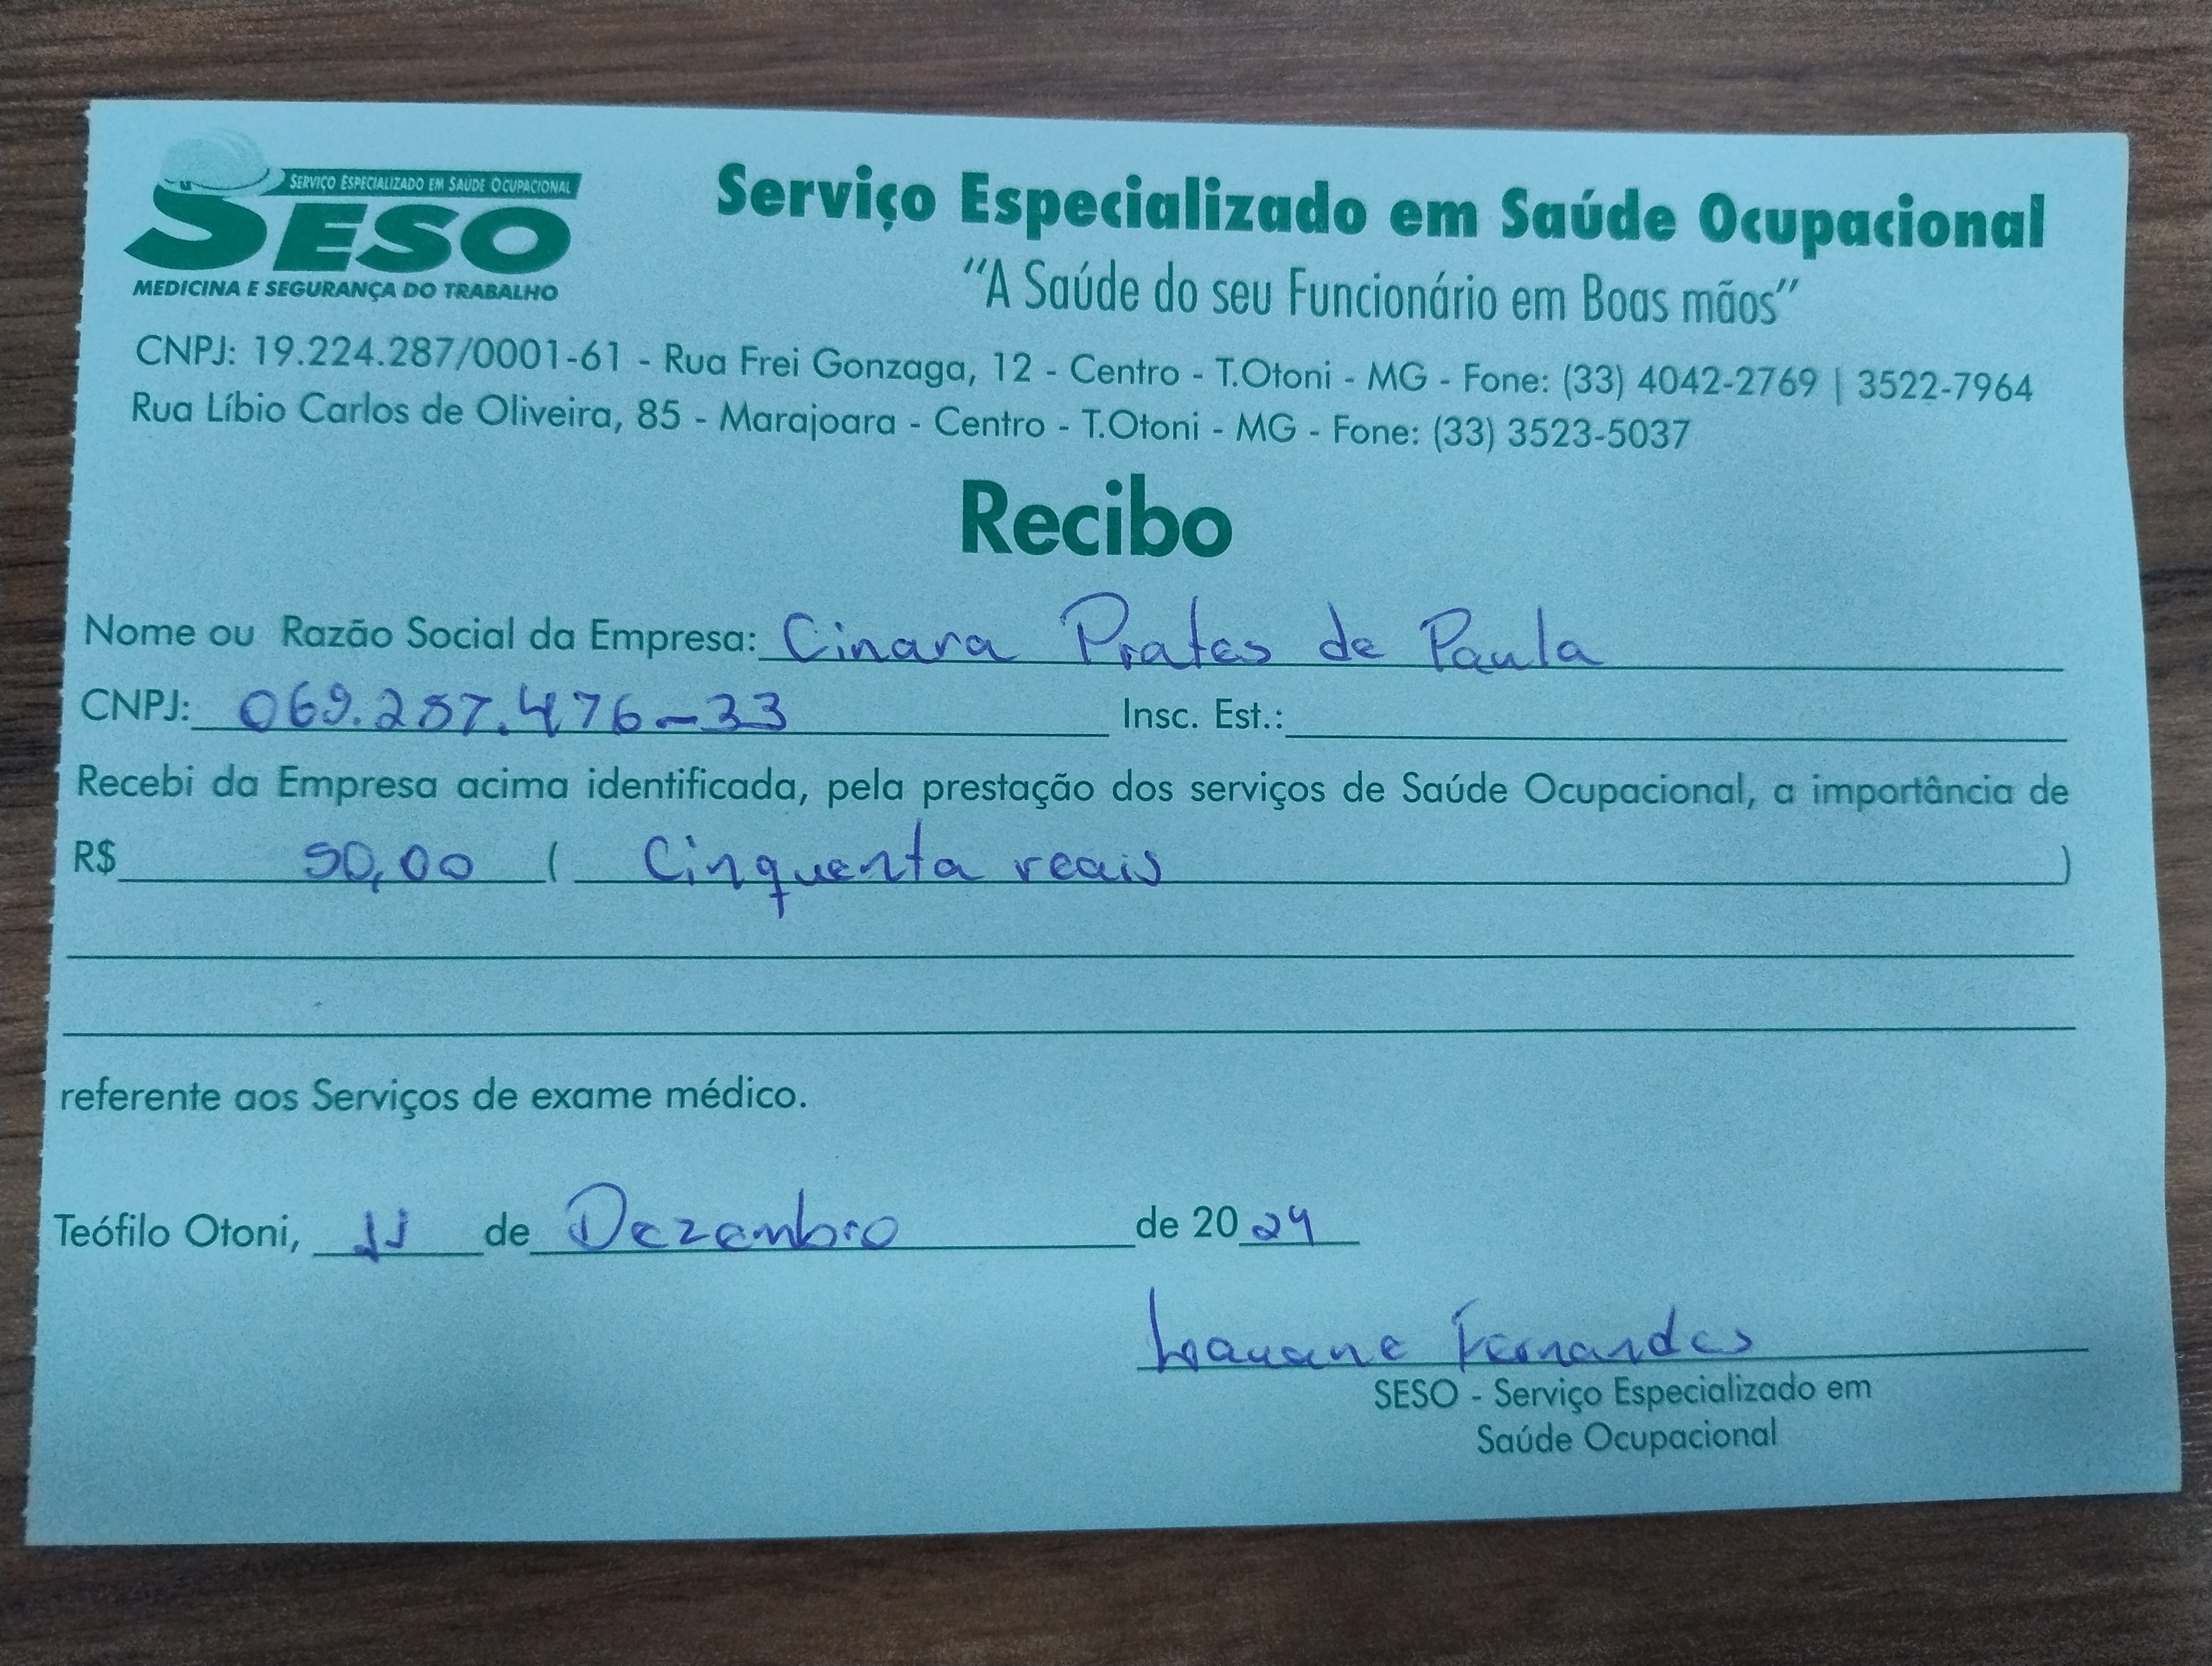 SERVIÇO ESPECIALIZADO EM SAÚDE OCUPACIONAL
SESO
MEDICINA E SEGURANÇA DO TRABALHO
Serviço Especializado em Saúde Ocupacional
"A Saúde do seu Funcionário em Boas mãos"
CNPJ: 19.224.287/0001-61 - Rua Frei Gonzaga, 12 - Centro - T.Otoni - MG - Fone: (33) 4042-2769 | 3522-7964
Rua Líbio Carlos de Oliveira, 85 - Marajoara - Centro - T.Otoni - MG - Fone: (33) 3523-5037
Recibo
Nome ou Razão Social da Empresa: Cinara Prates de Paula
CNPJ: 069.257.476-33 Insc. Est.:
Recebi da Empresa acima identificada, pela prestação dos serviços de Saúde Ocupacional, a importância de
R$ 50,00 ( Cinquenta reais )
referente aos Serviços de exame médico.
Teófilo Otoni, 11 de Dezembro de 2024
Fernandes
SESO - Serviço Especializado em
Saúde Ocupacional